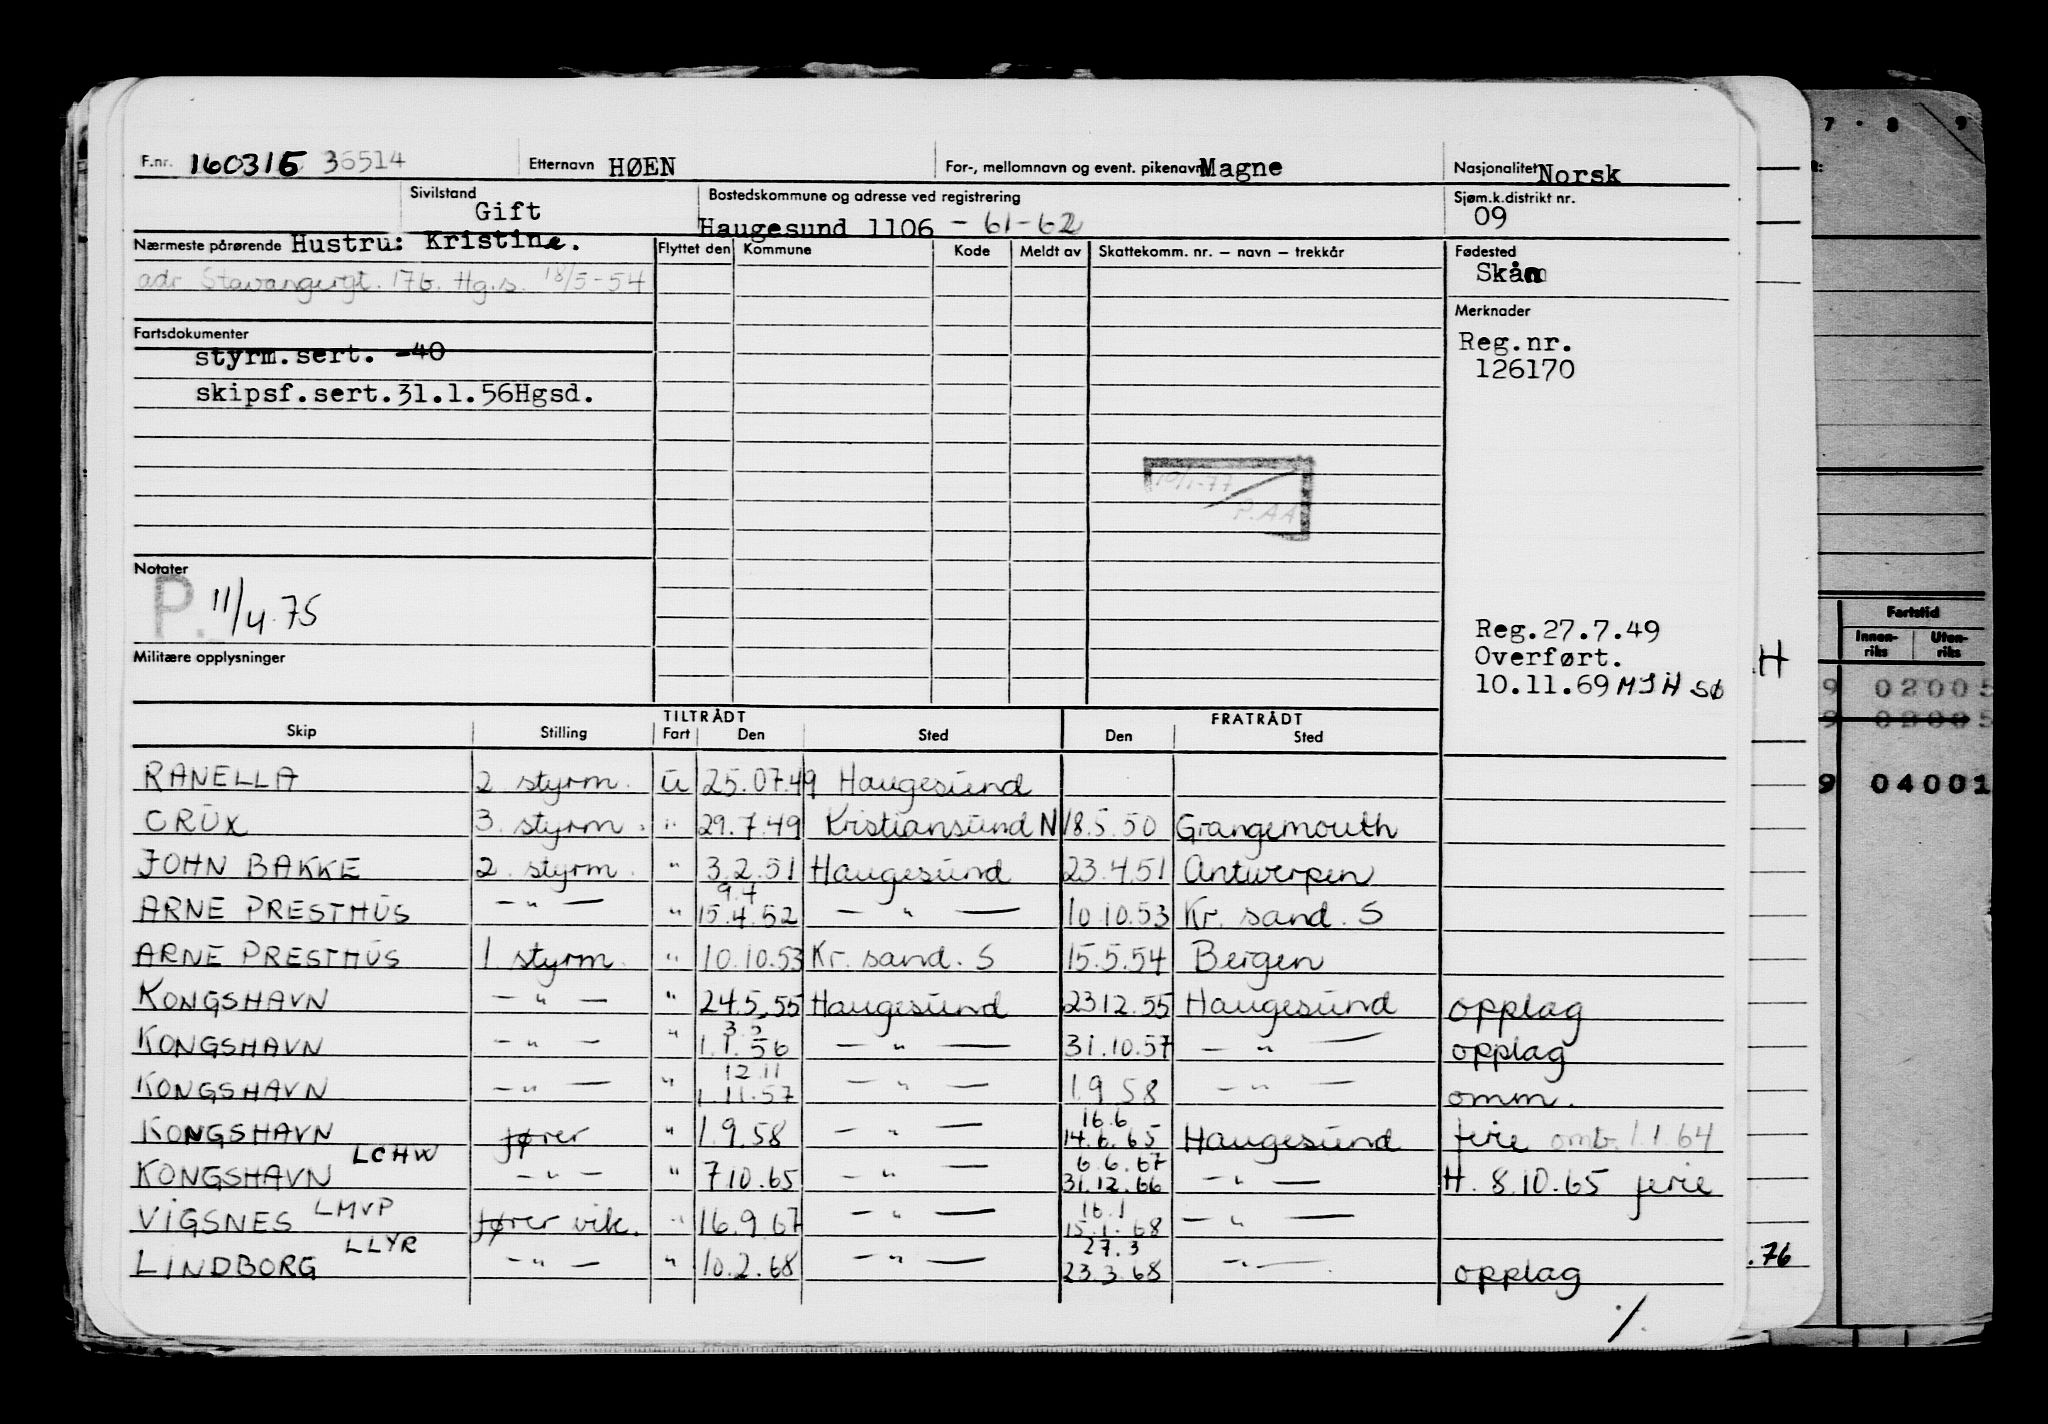 F.nr. 160315 36514 Etternavn HØEN For-, mellomnavn og event. pikenavn Magne Nasjonalitet Norsk
Sivilstand Gift Bostedskommune og adresse ved registrering Haugesund 1106 - 61-62 Sjøm.k.distrikt nr. 09
Nærmeste pårørende Hustru: Kristine. Flyttet den Kommune Kode Meldt av Skattekomm. nr. – navn – trekkår Fødested
adr Stavangergt. 17b. Hg.s. 18/5-54 Skån
Fartsdokumenter Merknader
styrm.sert. -40 Reg.nr.
126170
skipsf.sert.31.1.56Hgsd.
10/1-77
P.AA
Notater
P. 11/4.75
Reg.27.7.49
Militære opplysninger Overført.
10.11.69 MJH SØ
TILTRÅDT FRATRÅDT
Skip Stilling Fart Den Sted Den Sted
RANELLA 2 styrm. u 25.07.49 Haugesund
CRUX 3. styrm. " 29.7.49 Kristiansund N 18.5.50 Grangemouth
JOHN BAKKE 2. styrm. " 3.2.51 Haugesund 23.4.51 Antwerpen
9.7
ARNE PRESTHUS — " — " 15.4.52 — " — 10.10.53 Kr. sand. S
ARNE PRESTHUS 1. styrm. " 10.10.53 Kr. sand. S 15.5.54 Bergen
KONGSHAVN — " — " 24.5.55 Haugesund 23.12.55 Haugesund opplag
3.3
KONGSHAVN — " — " 1.1.56 — " — 31.10.57 — " — opplag
12.11
KONGSHAVN — " — " 1.11.57 — " — 1.9.58 — " — omm.
16.6
KONGSHAVN fører " 1.9.58 — " — 14.6.65 Haugesund ferie omb. 1.1.64
6.6.67
KONGSHAVN LCHW — " — " 7.10.65 — " — 31.12.66 — " — H. 8.10.65 ferie
16.1
VIGSNES LMVP fører vik. " 16.9.67 — " — 15.1.68 — " —
27.3
LINDBORG LLYR — " — " 10.2.68 — " — 23.3.68 — " — opplag
%
H
.76
7 · 8 9
Fartstid
Innen-riks Uten-riks
9 02005
9 02005
9 04001